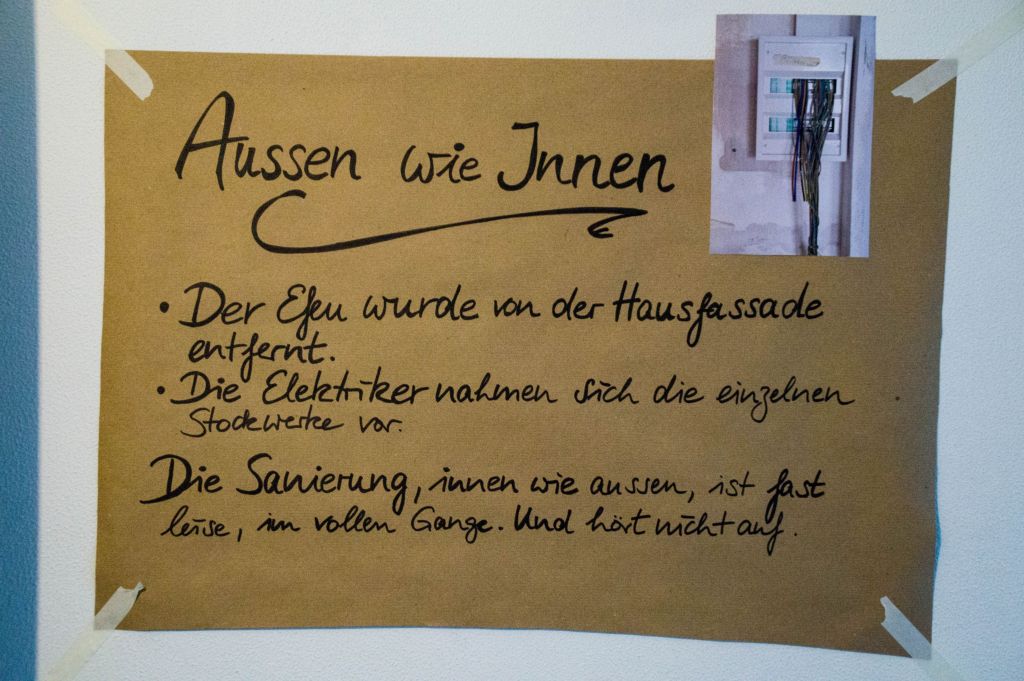 Aussen wie Innen
• Der Efeu wurde von der Hausfassade
entfernt.
• Die Elektriker nahmen sich die einzelnen
Stockwerke vor.
Die Sanierung, innen wie aussen, ist fast
leise, im vollen Gange. Und hört nicht auf.